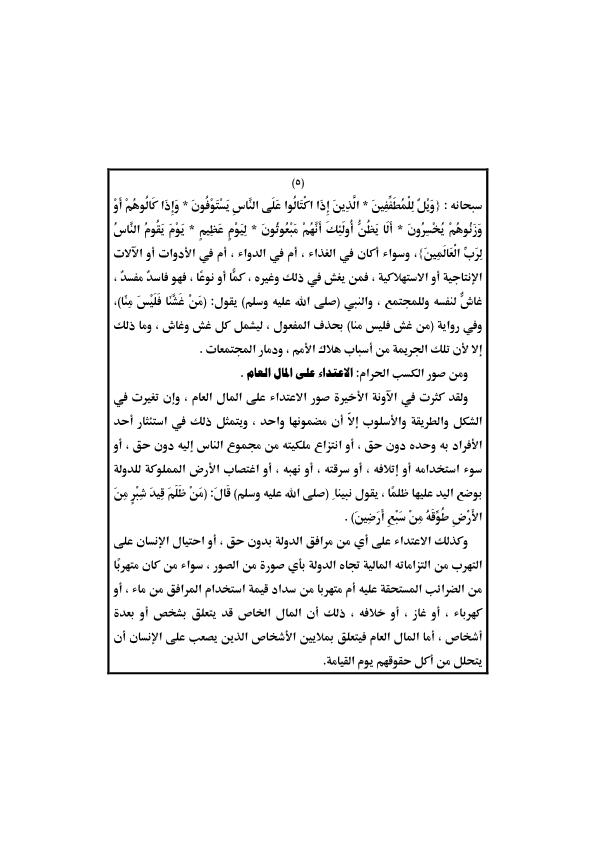 (٥)
سبحانه : {وَيْلٌ لِلْمُطَفِّفِينَ * الَّذِينَ إِذَا اكْتَالُوا عَلَى النَّاسِ يَسْتَوْفُونَ * وَإِذَا كَالُوهُمْ أَوْ
وَزَنُوهُمْ يُخْسِرُونَ * أَلَا يَظُنُّ أُولَئِكَ أَنَّهُمْ مَبْعُوثُونَ * لِيَوْمٍ عَظِيمٍ * يَوْمَ يَقُومُ النَّاسُ
لِرَبِّ الْعَالَمِينَ}، وسواء أكان في الغذاء ، أم في الدواء ، أم في الأدوات أو الآلات
الإنتاجية أو الاستهلاكية ، فمن يغش في ذلك وغيره ، كمًّا أو نوعًا ، فهو فاسدٌ مفسدٌ ،
غاشٌّ لنفسه وللمجتمع ، والنبي (صلى الله عليه وسلم) يقول: (مَنْ غَشَّنَا فَلَيْسَ مِنَّا)،
وفي رواية (من غش فليس منا) بحذف المفعول ، ليشمل كل غش وغاش ، وما ذلك
إلا لأن تلك الجريمة من أسباب هلاك الأمم ، ودمار المجتمعات .
ومن صور الكسب الحرام: الاعتداء على المال العام .
ولقد كثرت في الآونة الأخيرة صور الاعتداء على المال العام ، وإن تغيرت في
الشكل والطريقة والأسلوب إلاّ أن مضمونها واحد ، ويتمثل ذلك في استئثار أحد
الأفراد به وحده دون حق ، أو انتزاع ملكيته من مجموع الناس إليه دون حق ، أو
سوء استخدامه أو إتلافه ، أو سرقته ، أو نهبه ، أو اغتصاب الأرض المملوكة للدولة
بوضع اليد عليها ظلمًا ، يقول نبينا (صلى الله عليه وسلم) قَالَ: (مَنْ ظَلَمَ قِيدَ شِبْرٍ مِنَ
الأَرْضِ طُوِّقَهُ مِنْ سَبْعِ أَرَضِينَ) .
وكذلك الاعتداء على أي من مرافق الدولة بدون حق ، أو احتيال الإنسان على
التهرب من التزاماته المالية تجاه الدولة بأي صورة من الصور ، سواء من كان متهربًا
من الضرائب المستحقة عليه أم متهربا من سداد قيمة استخدام المرافق من ماء ، أو
كهرباء ، أو غاز ، أو خلافه ، ذلك أن المال الخاص قد يتعلق بشخص أو بعدة
أشخاص ، أما المال العام فيتعلق بملايين الأشخاص الذين يصعب على الإنسان أن
يتحلل من أكل حقوقهم يوم القيامة.